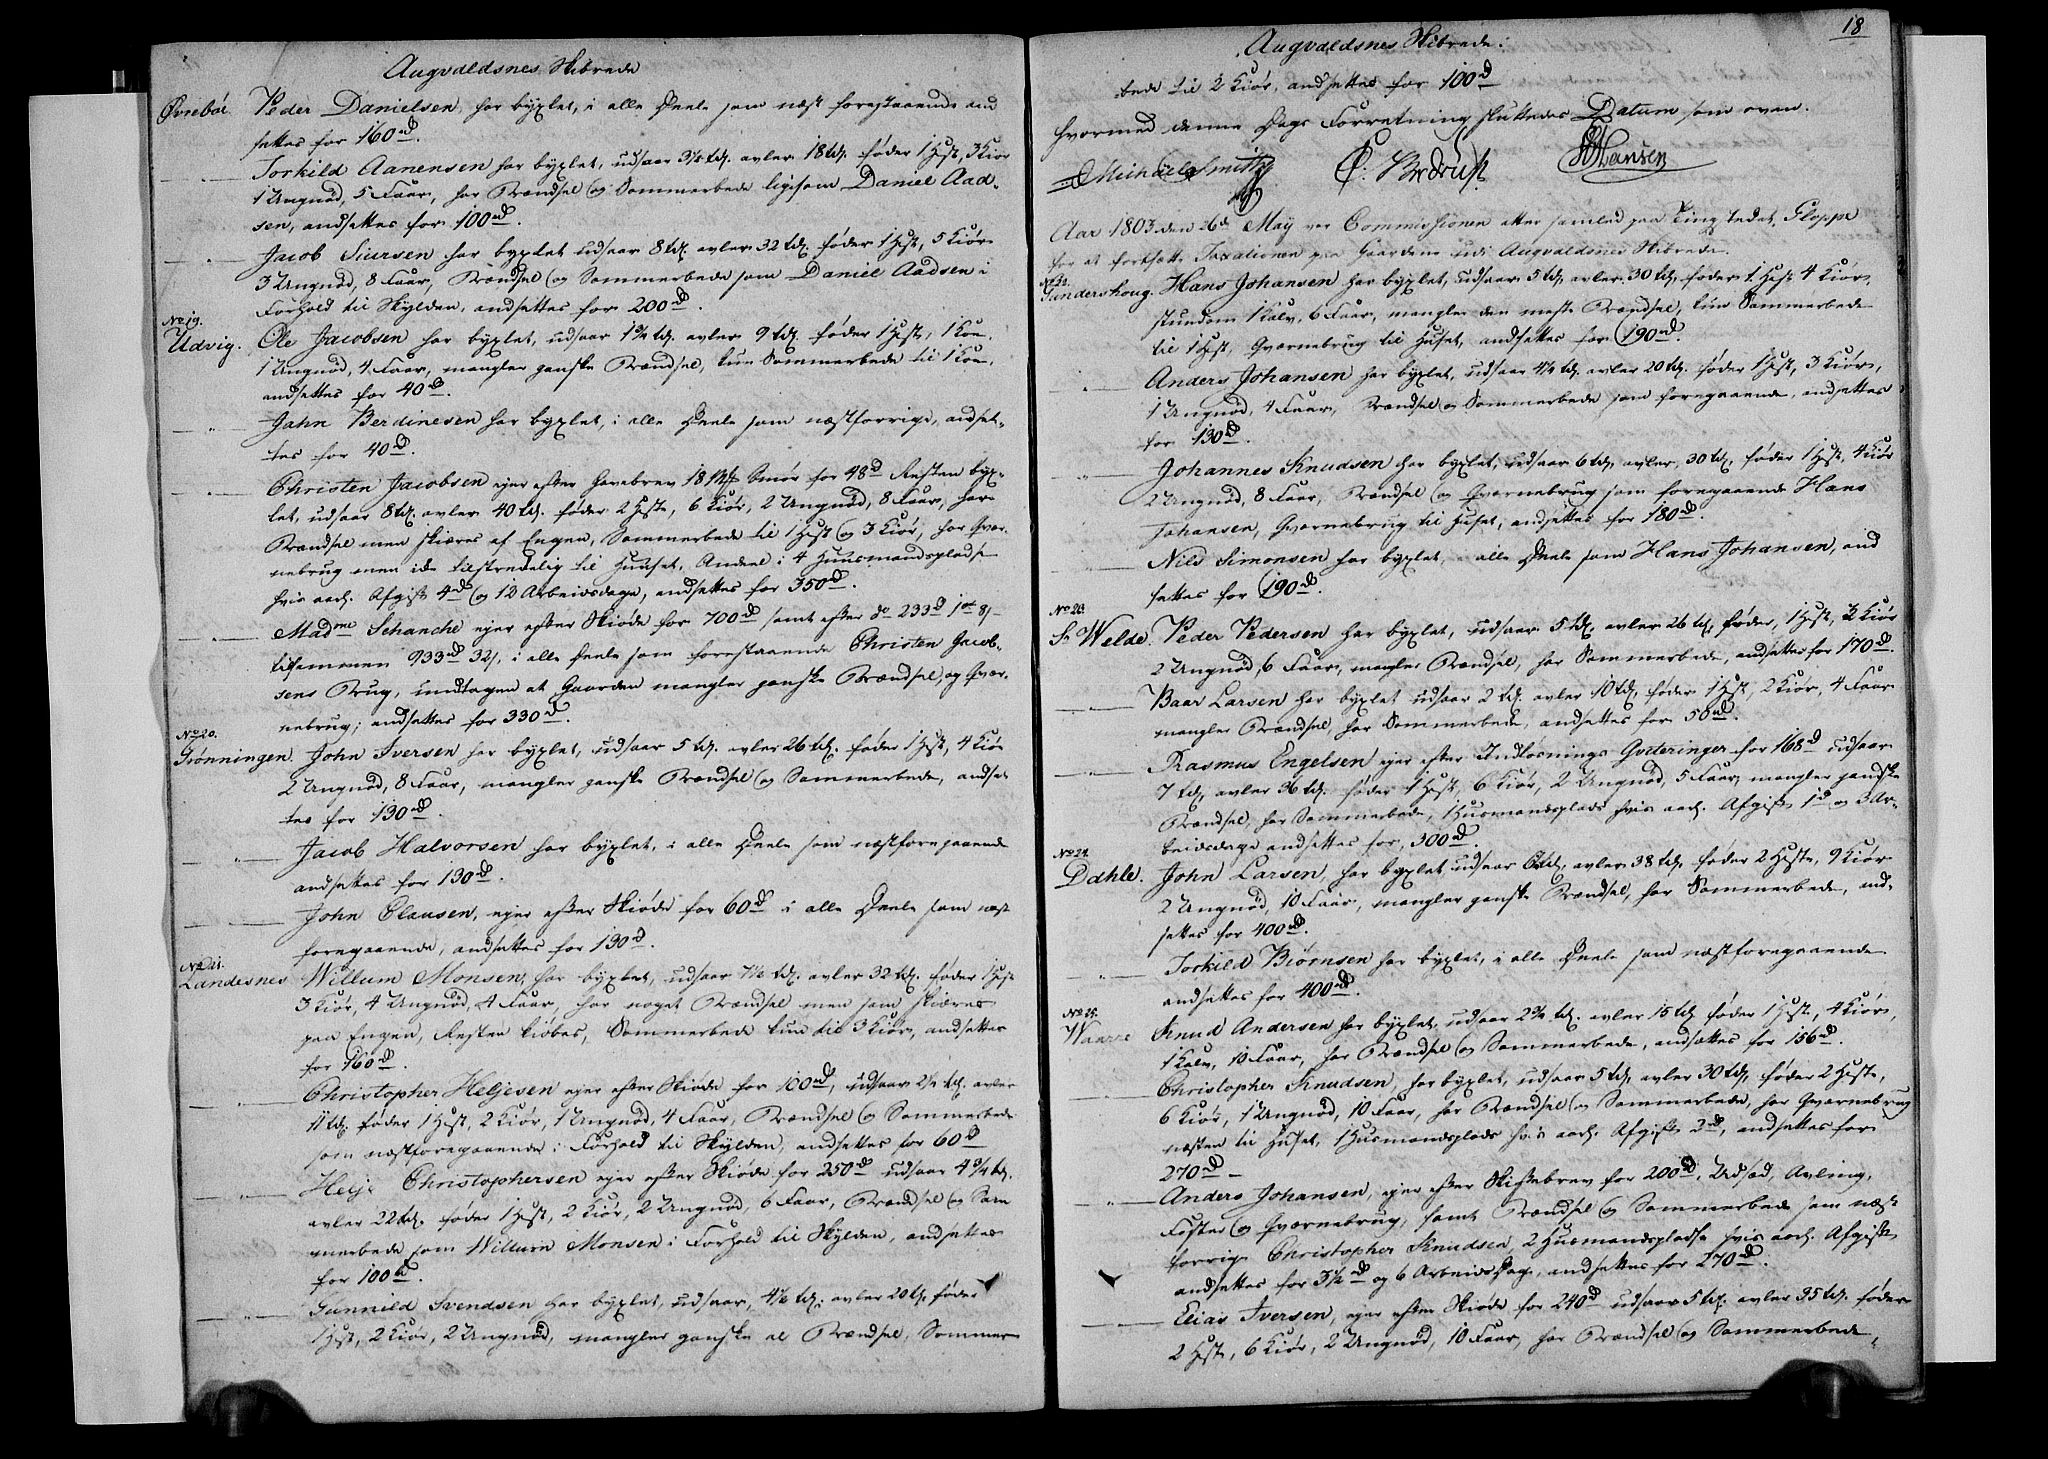 Augvaldsnes Skibrede
Øvrebøe. Peder Danielsen, har byxlet, i alle Deele som næst forestaaende and
settes for 160rd.
" Torkild Aanensen har byxlet, udsaar 3½ td. avler 18 td. føder 1 Hest, 3 Kiør
1 Ungnød, 5 Faar, har Brændsel og Sommerbede ligesom Daniel Aad-
sen, andsettes for 100rd.
" Jacob Siursen har byxlet udsaar 8 td. avler 32 td. føder 1 Hest, 5 Kiør
3 Ungnød, 8 Faar, Brændsel og Sommerbede som Daniel Aadsen i
Forhold til Skylden, andsettes for 200rd.
No 19.
Udvig. Ole Jacobsen har byxlet, udsaar td. avler 9 td. føder 1 Hest, 1 Koe
1 Ungnød, 4 Faar, mangler ganske Brændsel, kun Sommerbede til 1 Koe,
andsettes for 40rd.
" Jahn Berdinesen har byxlet, i alle Deele som næstforrige, andset-
tes for 40rd.
" Christen Jacobsen ejer efter Gavebrev 18 Mrk Smør for 48rd Resten byx-
let, udsaar 8 td. avler 40 td. føder 2 Heste, 6 Kiør, 2 Ungnød, 8 Faar, har
Brændsel men skiæres af Engen, Sommerbede til 1 Hest og 3 Kiør, har Qvær-
nebrug men ikke tilstrædelig til Huuset, Andeel i 4 Huusmandspladse
hvis aarl. Afgift 4rd og 12 Arbeidsdage, andsettes for 350rd.
" Madme Schanche ejer efter Skiøde for 700rd samt efter do 233rd 1ort 8s
tilsammen 933rd 32s, i alle Deele som forestaaende Christen Jacob-
sens Brug, undtagen at Gaarden mangler ganske Brændsel, og Qvær-
nebrug; andsettes for 330rd.
No 20.
Grønningen. John Iversen har byxlet, udsaar 5 td. avler 26 td. føder 1 Hest, 4 Kiør
2 Ungnød, 8 Faar, mangler ganske Brændsel og Sommerbede, andset-
tes for 130rd.
" Jacob Halvorsen har byxlet, i alle Deele som næstforegaaende
andsettes for 130rd.
" John Clausen, ejer efter Skiøde for 60rd i alle Deele som næst
foregaaende, andsettes for 130rd.
No 21.
Landesnes Willum Monsen, har byxlet, udsaar 7½ td. avler 32 td. føder 1 Hest
3 Kiør, 4 Ungnød, 4 Faar, har noget Brændsel men som skiæres
paa Engen, Resten kiøbes, Sommerbede kun til 3 Kiør, andsettes
for 160rd.
" Christopher Heljesen ejer efter Skiøde for 100rd, udsaar 2½ td. avler
11 td. føder 1 Hest, 2 Kiør, 1 Ungnød, 4 Faar, Brændsel og Sommerbede
som næstforegaaende i Forhold til Skylden, andsettes for 60rd
" Helje Christophersen ejer efter Skiøde for 250rd udsaar 4¾ td.
avler 22 td. føder 1 Hest, 2 Kiør, 2 Ungnød, 6 Faar, Brændsel og Som
merbede som Willum Monsen i Forhold til Skylden, andsettes
for 100rd.
" Gunnild Svendsen har byxlet, udsaar 4½ td. avler 20 td. føder
1 Hest, 2 Kiør, 2 Ungnød, mangler ganske al Brændsel, Sommer
18
Augvaldsnes Skibrede.
bede til 2 Kiør, andsettes for 100rd
hvormed denne Dags Forretning sluttedes Datum som oven.
Michael Smith Hansen
Aar 1803 den 26de May var Commissionen atter samled paa Tingstedet, Floppe
for at fortsætte Taxationen paa Gaardene udi Augvaldsnes Skibrede.
No 22.
Gundershoug. Hans Johansen har byxlet, udsaar 5 td. avler 30 td. føder 1 Hest 4 Kiør,
stundom 1 Kalv, 6 Faar, mangler den meste Brændsel, kun Sommerbede
til 1 Hest, Qværnebrug til Huset, andsettes for 190rd.
" Anders Johansen har byxlet, udsaar 4½ td. avler 20 td. føder 1 Hest, 3 Kiør,
1 Ungnød, 4 Faar, Brændsel og Sommerbede som foregaaende, andsettes
for 130rd.
" Johannes Knudsen har byxlet, udsaar 6 td. avler 30 td. føder 1 Hest, 4 Kiør
2 Ungnød, 8 Faar, Brændsel og Qværnebrug som foregaaende Hans
Johansen, Qværnebrug til Huset, andsettes for 180rd.
" Nils Simonsen har byxlet, alle Deele som Hans Johansen, and
settes for 190rd.
No 23.
Sr Welde. Peder Pedersen har byxlet, udsaar 5 td. avler 26 td. føder, 1 Hest, 3 Kiør
2 Ungnød, 6 Faar, mangler Brændsel, har Sommerbede, andsettes for 170rd.
" Baar Larsen har byxlet udsaar 2 td. avler 10 td. føder 1 Hest, 2 Kiør, 4 Faar
mangler Brændsel, har Sommerbede, andsettes for 50rd.
" Rasmus Engelsen ejer efter Indløsnings Qviteringer for 168rd udsaar
7 td. avler 36 td. føder 1 Hest, 6 Kiør, 2 Ungnød, 5 Faar, mangler ganske
Brændsel, har Sommerbede, 1 Huusmandsplads hvis aarl. Afgift 1rd og 3 Ar-
beidsdage andsettes for 300rd.
No 24.
Dahle. John Larsen, har byxlet udsaar 6 td. avler 38 td. føder 2 Heste, 9 Kiør
2 Ungnød, 10 Faar, mangler ganske Brændsel, har Sommerbede, and-
settes for 400rd.
" Torkild Biørnsen har byxlet, i alle Deele som næstforegaaende
andsettes for 400rd.
No 25.
Waarre Knud Andersen har byxlet, udsaar 2¾ td. avler 15 td. føder 1 Hest, 4 Kiør,
1 Kalv, 10 Faar, har Brændsel og Sommerbede, andsættes for 156rd.
" Christopher Knudsen, har byxlet, udsaar 5 td. avler 30 td. føder 2 Heste,
6 Kiør, 1 Ungnød, 10 Faar, har Brændsel og Sommerbede, har Qværnebrug
næsten til Huset, 1 Husmandsplads hvis aarl. Afgift 2rd, andsettes for
270rd
" Anders Johansen, ejer efter Skiftebrev for 200rd, Udsæd, Avling,
Foster og Qværnebrug, samt Brændsel og Sommerbede som næst
forrige Christopher Knudsen, 2 Husmandspladse hvis aarl. Afgift
andsettes for 3½rd og 6 Arbeidsdage, andsettes for 270rd.
" Elias Iversen, ejer efter Skiøde for 240rd udsaar 5 td. avler 35 td. føder
2 Heste, 6 Kiør, 2 Ungnød, 10 Faar, har Brændsel og Sommerbede